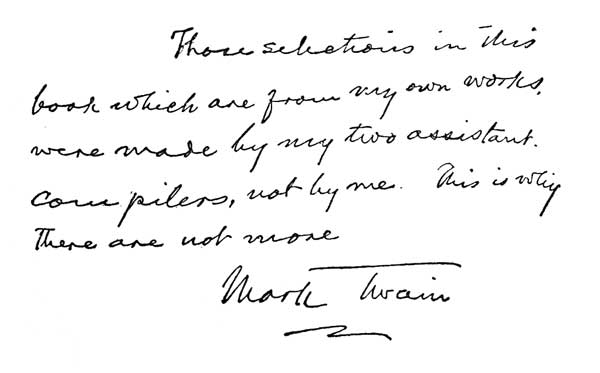 Those selections in this
book which are from my own works,
were made by my two assistant.
compilers, not by me. This is why
there are not more
Mark Twain